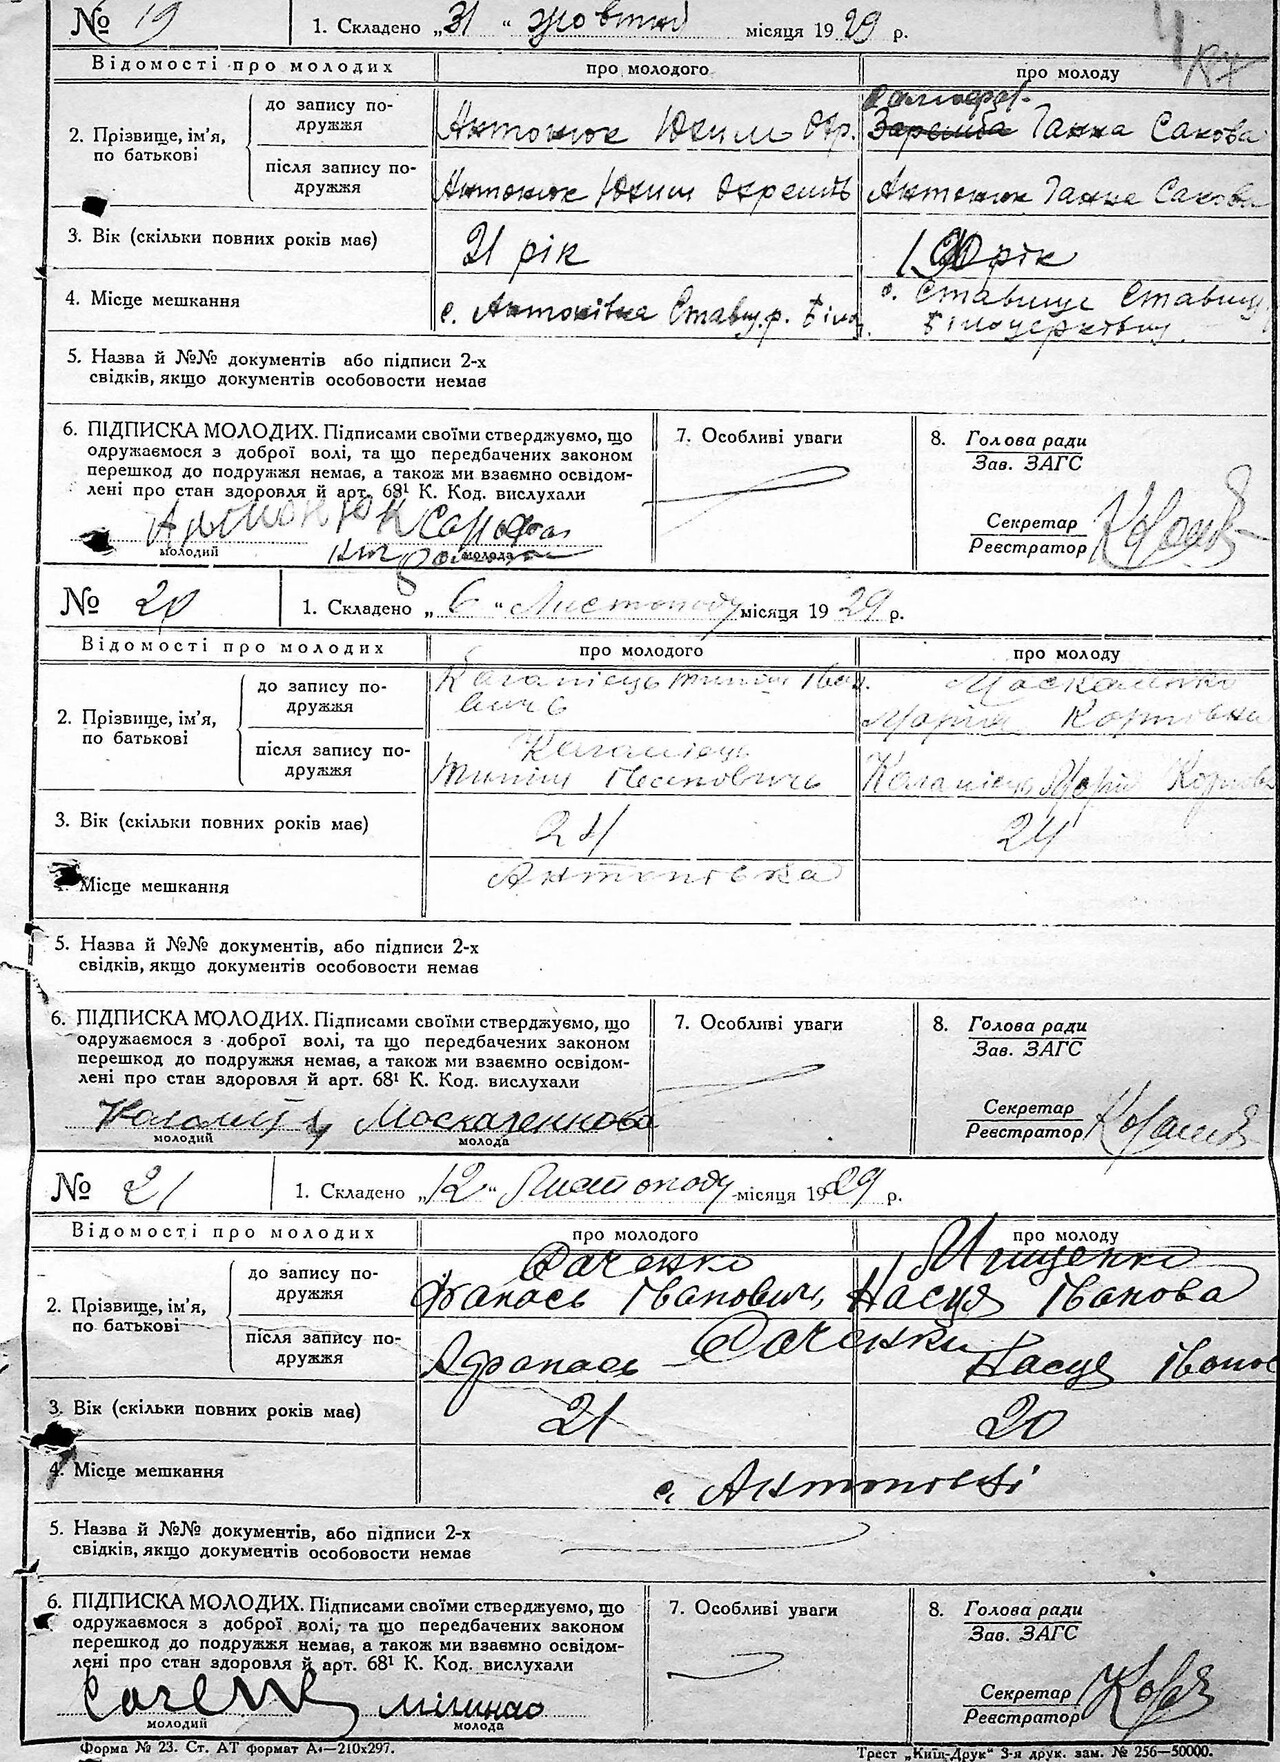 № 19 1. Складено „31“ жовтня місяця 1929 р.
Відомості про молодих про молодого про молоду
2. Прізвище, ім’я, по батькові
до запису подружжя Антонюк Юхим Охр. Заремба Ганна Сакова
після запису подружжя Антонюк Юхим Охремів Антонюк Ганна Сакова
3. Вік (скільки повних років має) 21 рік рік
4. Місце мешкання с. Антонівка Ставищ. р. Білоц. с. Ставище Ставищ.
Білоцерківщ.
5. Назва й №№ документів або підписи 2-х
свідків, якщо документів особовости немає
6. ПІДПИСКА МОЛОДИХ. Підписами своїми стверджуємо, що
одружаємося з доброї волі, та що передбачених законом
перешкод до подружжя немає, а також ми взаємно освідом-
лені про стан здоров'я й арт. 68¹ К. Код. вислухали
7. Особливі уваги
8. Голова ради
Зав. ЗАГС
Секретар
Реєстратор
Антонюк
молодий молода
№ 20 1. Складено „6“ Листопаду місяця 1929 р.
Відомості про молодих про молодого про молоду
2. Прізвище, ім’я, по батькові
до запису подружжя Москаленко
Марія
після запису подружжя
Іванович Марія
3. Вік (скільки повних років має) 21 24
4. Місце мешкання Антонівка
5. Назва й №№ документів, або підписи 2-х
свідків, якщо документів особовости немає
6. ПІДПИСКА МОЛОДИХ. Підписами своїми стверджуємо, що
одружаємося з доброї волі, та що передбачених законом
перешкод до подружжя немає, а також ми взаємно освідом-
лені про стан здоров'я й арт. 68¹ К. Код. вислухали
7. Особливі уваги
8. Голова ради
Зав. ЗАГС
Секретар
Реєстратор
молодий молода
№ 21 1. Складено „12“ Листопаду місяця 1929 р.
Відомості про молодих про молодого про молоду
2. Прізвище, ім’я, по батькові
до запису подружжя Саченко Міщенко
Іванович, Настя Іванова
після запису подружжя Саченки
Афанась Настя Іванов
3. Вік (скільки повних років має) 21 20
4. Місце мешкання с. Антонівкі
5. Назва й №№ документів, або підписи 2-х
свідків, якщо документів особовости немає
6. ПІДПИСКА МОЛОДИХ. Підписами своїми стверджуємо, що
одружаємося з доброї волі, та що передбачених законом
перешкод до подружжя немає, а також ми взаємно освідом-
лені про стан здоров'я й арт. 68¹ К. Код. вислухали
7. Особливі уваги
8. Голова ради
Зав. ЗАГС
Секретар
Реєстратор
молодий молода
Форма № 23. Ст. АТ формат А₄—210х297. Трест „Київ-Друк“ 3-я друк. зам. № 256—50000.